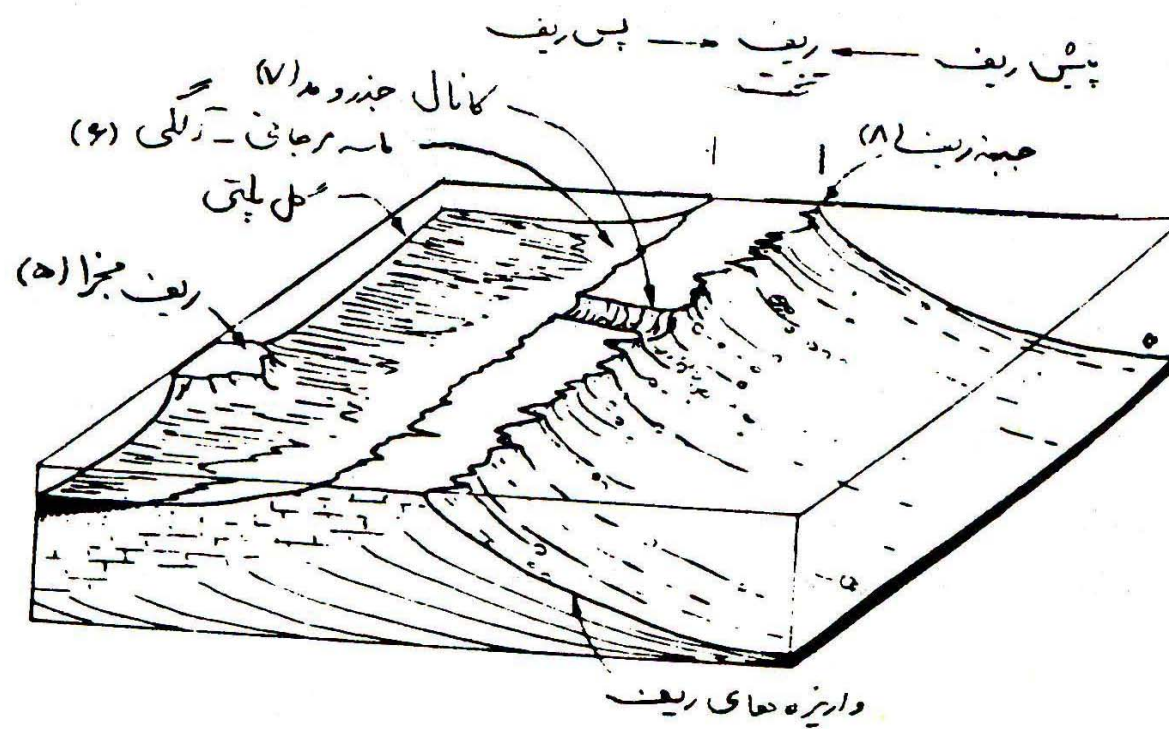 پیش ریف ← ریف → پس ریف
تخت
کانال جذر و مد (۷)
ماسه مرجانی - آلگی (۶)
جبهه ریف (۸)
گل پلتی
ریف مجزا (۵)
واریزه های ریف